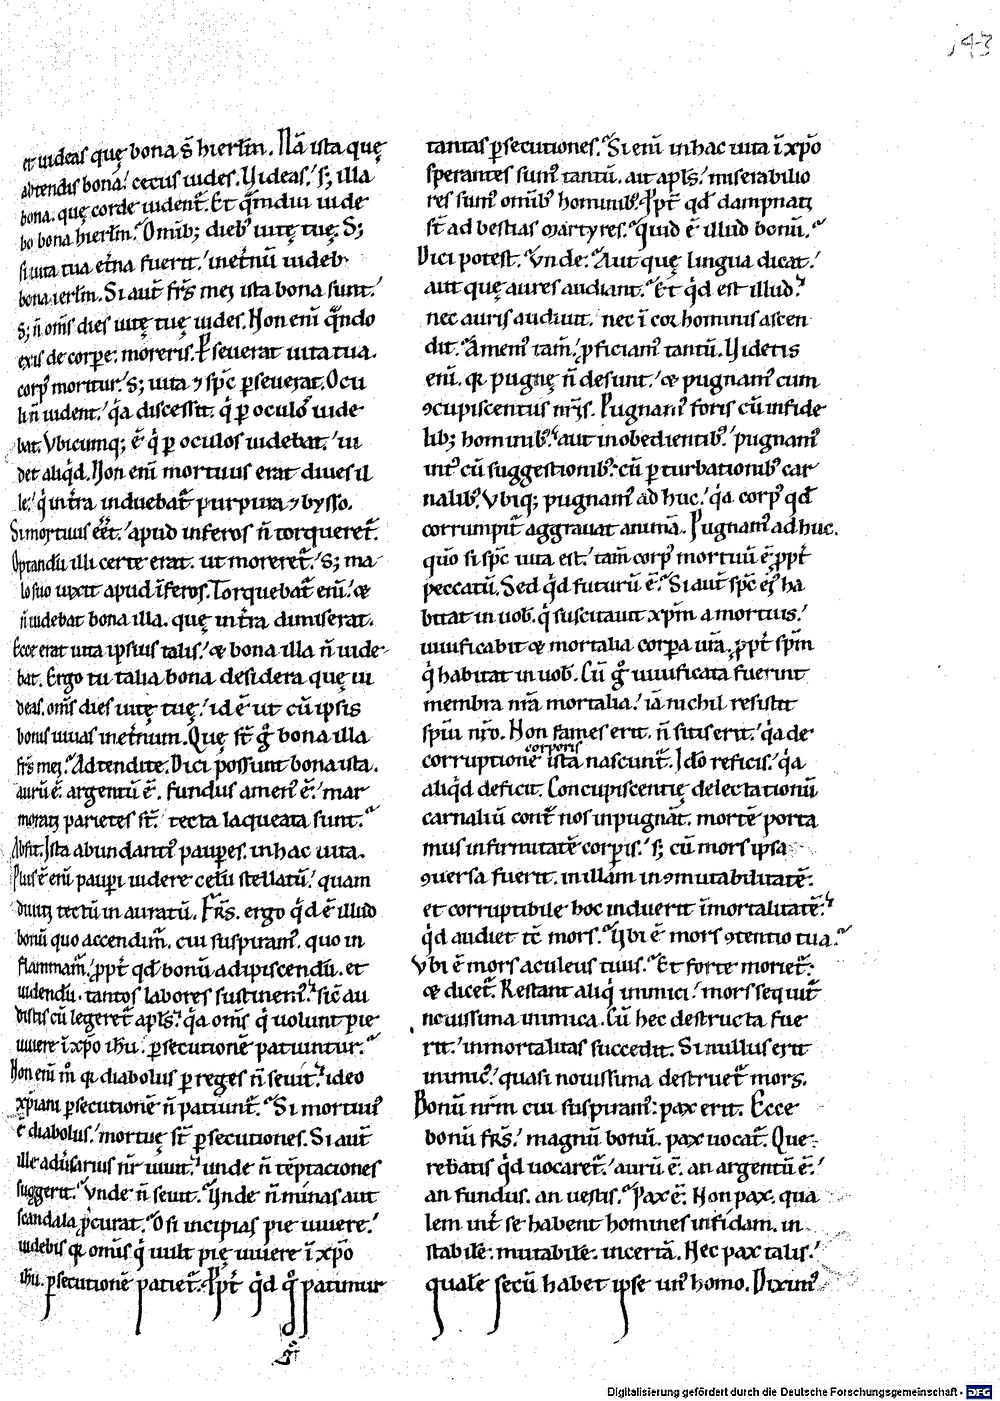 143
et uideas quę bona s̄ hierłm. Nā ista quę
adtendis bona! cecus uides. Videas! s; illa
bona. quę corde uident̄. Et q̄mdiu uide
bo bona hierłm. Omnib; dieb᷒ uitę tuę. S;
si uita tua et̄na fuerit! inet̄nū uideb
bona ierłm. Si aut̄ fr̄s mei ista bona sunt!
S; n̄ om̄s dies uitę tuę uides. Non eni q̄ndo
exis de corꝑe. moreris. Ꝑseuerat uita tua.
corp᷒ moritur! s; uita ⁊ sp̄c ꝑseuerat. Ocu
li n̄ uident! q̇a discessit. q̇ ꝑ oculos uide
bat. Vbicumq; ē q̇ ꝑ oculos uidebat! ui
det aliq̇d. Non eni mortuus erat diues il
le! q̇ int̄ra induebat̄ purpura ⁊ bysso.
Si mortuus eēt! apud inferos n̄ torqueret̄.
Optandū illi certe erat. ut moreret̄! S; ma
lo suo uixit apud īferos. Torquebat̄ enī! &
n̄ uidebat bona illa. quę int̄ra dimiserat.
Ecce erat uita ipsius talis! & bona illa n̄ uide
bat. Ergo tu talia bona desidera quę ui
deas. om̄s dies uitę tuę! id ē ut cū ipsis
bonis uiuas inet̄num. Quę st̄ g̊ bona illa
fr̄s mei. Adtendite. Dici possunt bona ista.
aurū ē. argentū ē. fundus amen᷒ ē! mar
morati parietes st̄. tecta laqueata sunt.
Absit. Ista abundant᷒ pauꝑes. in hac uita.
Plus ē enī pauꝑi uidere celū stellatū! quam
diuiti tectū in auratū. Fr̄s. ergo q̇d ē illud
bonū quo accendim̄. cui suspiram᷒. quo in
flammam̄. ꝓpt̄ qđ bonū adipiscendū. et
uidendū. tantos labores sustinem᷒. sic̄ au
distis cū legeret̄ apłs! q̇a om̄s q̇ uolunt pie
uiuere ī xp̄o ihū. ꝑsecutionē patiuntur.
Non enī m̊ q; diabolus ꝑ reges n̄ seuit! ideo
xp̄iani ꝑsecutionē n̄ patiunt̄. Si mortuus
ē diabolus! mortuę st̄ ꝑsecutiones. Si aut̄
ille aduersarius nr̄ uiuit! unde n̄ tēptaciones
suggerit. Vnde n̄ seuit. Vnde n̄ minas aut
scandala ꝓcurat. O si incipias pie uiuere!
uidebis q; om̄is q̇ uult pię uiuere ī xp̄o
ihū. ꝑsecutionē patiet̄. Ꝓpt̄ q̇d g̊ patimur
tantas ꝑsecutiones. Si enī in hac uita ī xp̄o
sperantes sum᷒ tantū. ait apłs! miserabilio
res sum᷒ omīb᷒ hominib᷒. Ꝓpt̄ qđ dampnati
st̄ ad bestias martyres. Quid ē illud bonū.
Dici potest. Vnde. Aut quę lingua dicat!
aut quę aures audiant. Et q̇d est illud.
nec auris audiuit. nec ī cor hominis ascen
dit. Amem᷒ tam̄! ꝓficiam᷒ tantū. Videtis
enī. q; pugnę n̄ desunt! & pugnam᷒ cum
ꝯcupiscentiis nr̄is. Pugnam᷒ foris cū infide
lib; hominib᷒! aut inobedientib᷒! pugnam᷒
int᷒ cū suggestionib᷒. cū ꝑturbationib᷒ car
nalib᷒. Vbiq; pugnam᷒ ad huc! q̇a corp᷒ qđ
corrumpit̄ aggrauat animā. Pugnam᷒ ad huc.
quō si sp̄c uita est! tam̄ corp᷒ mortuū ē ꝓpt̄
peccatū. Sed q̇d futurū ē. Si aut̄ sp̄c ei᷒ ha
bitat in uob. q̇ suscitauit xp̄m a mortuis!
uiuificabit & mortalia corꝑa ur̄a. ꝓpt̄ sp̄m
q̇ habitat in uob. Cū g̊ uiuificata fuerint
membra nr̄a mortalia! iā nichil resistit
spīui nr̄o. Non fames erit. n̄ sitis erit! q̇a de
corporis
corruptionē ista nascunt̄. Ideo reficis! q̇a
aliq̇d deficit. Concupiscentię delectationū
carnaliū cont̄ nos inpugnāt. mortē porta
mus infirmitatē corꝑis! s; cū mors ipsa
ꝯuersa fuerit. in illam inꝯmutabilitatē.
et corruptibile hoc induerit īmortalitatē!
q̇d audiet tc̄ mors. Vbi ē mors ꝯtentio tua.
Vbi ē mors aculeus tuus. Et forte moriet̄.
& dicet̄. Restant aliq̇ inimici! mors sequit̄
nouissima inimica. Cū hec destructa fue
rit! inmortalitas succedit. Si nullus erit
inimic᷒! quasi nouissima destruet̄ mors.
Bonū nr̄m cui suspiram᷒. pax erit. Ecce
bonū fr̄s! magnū bonū. pax uocat̄. Que
rebatis q̇d uocaret̄! aurū ē. an argentū ē!
an fundus. an uestis. Pax ē. Non pax. qua
lem int̄ se habent homines infidam. in
stabilē. mutabilē. incertā. Nec pax talis!
quale secū habet ipse un᷒ homo. Dixim᷒
Digitalisierung gefördert durch die Deutsche Forschungsgemeinschaft - DFG